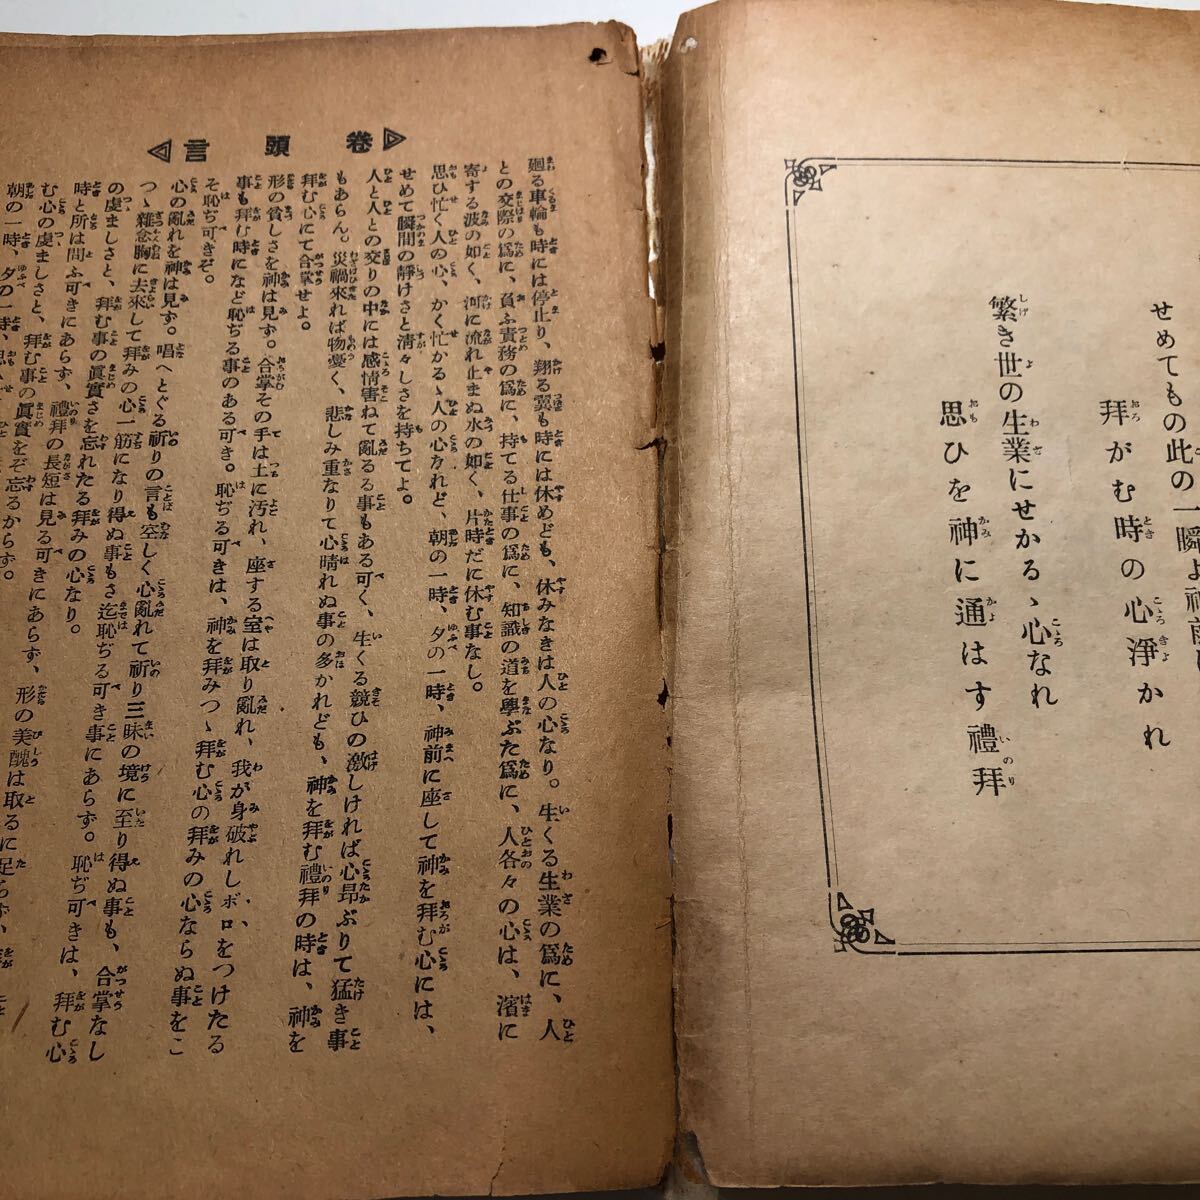 せめてもの此の一瞬よ神前に
拜がむ時の心淨かれ
繁き世の生業にせかるゝ心なれ
思ひを神に通はす禮拜
卷頭言
廻る車輪も時には停止り、翔る翼も時には休めども、休みなきは人の心なり。生くる生業の爲に、人
との交際の爲に、負ふ責務の爲に、持てる仕事の爲に、知識の道を學ぶた爲に、人各々の心は、濱に
寄する波の如く、河に流れ止まぬ水の如く、片時だに休む事なし。
思ひ忙く人の心、かく忙かるゝ人の心なれど、朝の一時、夕の一時、神前に座して神を拜む心には、
せめて瞬間の靜けさと淸々しさを持ちてよ。
人と人との交りの中には感情害ねて亂るる事もある可く、生くる競ひの激しければ心昂ぶりて猛き事
もあらん。災禍來れば物憂く、悲しみ重なりて心晴れぬ事の多かれども、神を拜む禮拜の時は、神を
拜む心にて合掌せよ。
形の貧しさを神は見ず。合掌その手は土に汚れ、座する室は取り亂れ、我が身破れしボロをつけたる
事も拜む時になど恥ぢる事のある可き。恥ぢる可きは、神を拜みつゝ拜む心の拜みの心ならぬ事をこ
そ恥ぢ可きぞ。
心の亂れを神は見ず。唱へとぐる祈りの言も空しく心亂れて祈り三昧の境に至り得ぬ事も、合掌なし
つゝ雜念胸に去來して拜みの心一筋になり得ぬ事もさ迄恥ぢる可き事にあらず。恥ぢ可きは、拜む心
の虔ましさと、拜む事の眞實さを忘れたる拜みの心なり。
時と所は問ふ可きにあらず、禮拜の長短は見る可きにあらず、形の美醜は取るに足らず、
む心の虔ましさと、拜む事の眞實をぞ忘るからず。
朝の一時、夕の一時、思